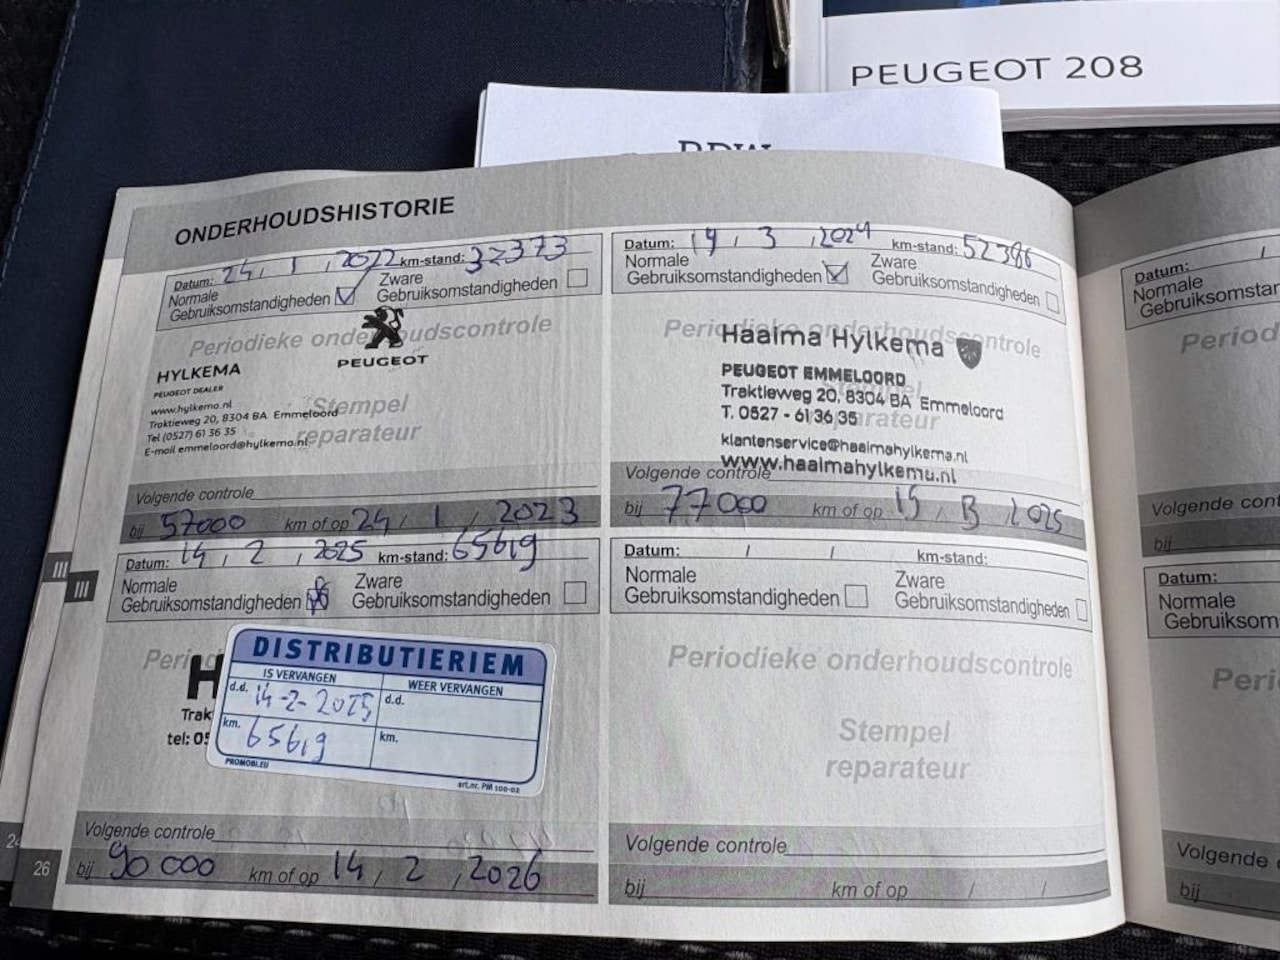 PEUGEOT 208
RDW
ONDERHOUDSHISTORIE
Datum: 24 / 1 / 2022 km-stand: 32373
Normale
Gebruiksomstandigheden
Zware
Gebruiksomstandigheden
Periodieke onderhoudscontrole
PEUGEOT
HYLKEMA
PEUGEOT DEALER
www.hylkema.nl
Traktieweg 20, 8304 BA Emmeloord
Tel (0527) 61 36 35
E-mail emmeloord@hylkema.nl
Stempel
reparateur
Volgende controle
bij 57000 km of op 24 / 1 / 2023
Datum: 19 / 3 / 2024 km-stand: 52386
Normale
Gebruiksomstandigheden
Zware
Gebruiksomstandigheden
Periodieke onderhoudscontrole
Haaima Hylkema
PEUGEOT EMMELOORD
Traktieweg 20, 8304 BA Emmeloord
T. 0527 - 61 36 35
klantenservice@haaimahylkema.nl
www.haaimahylkema.nl
Stempel
reparateur
Volgende controle
bij 77000 km of op 19 / 3 / 2025
Datum: 14 / 2 / 2025 km-stand: 65619
Normale
Gebruiksomstandigheden
Zware
Gebruiksomstandigheden
Period
H
Trak
tel: 05
DISTRIBUTIERIEM
IS VERVANGEN
WEER VERVANGEN
d.d. 14-2-2025
d.d.
km. 65619
km.
PROMOBI.EU
art.nr. PM 100-02
Volgende controle
bij 90 000 km of op 14 / 2 / 2026
Datum: / / km-stand:
Normale
Gebruiksomstandigheden
Zware
Gebruiksomstandigheden
Periodieke onderhoudscontrole
Stempel
reparateur
Volgende controle
bij km of op / /
III
III
24
26
Datum: /
Normale
Gebruiksomstar
Period
Volgende con
bij
Datum:
Normale
Gebruiksom
Peri
Volgende
bij